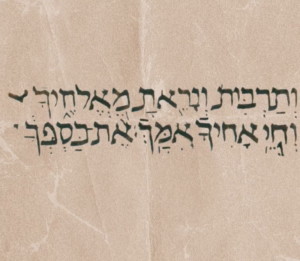 וְתַרְבּוּת וְנָרְאַתָ מֱאֱלחֶיךָ
וְחֵי אָחִיךָ אִמָּךָ אֶת־בַּסְפְּךָ